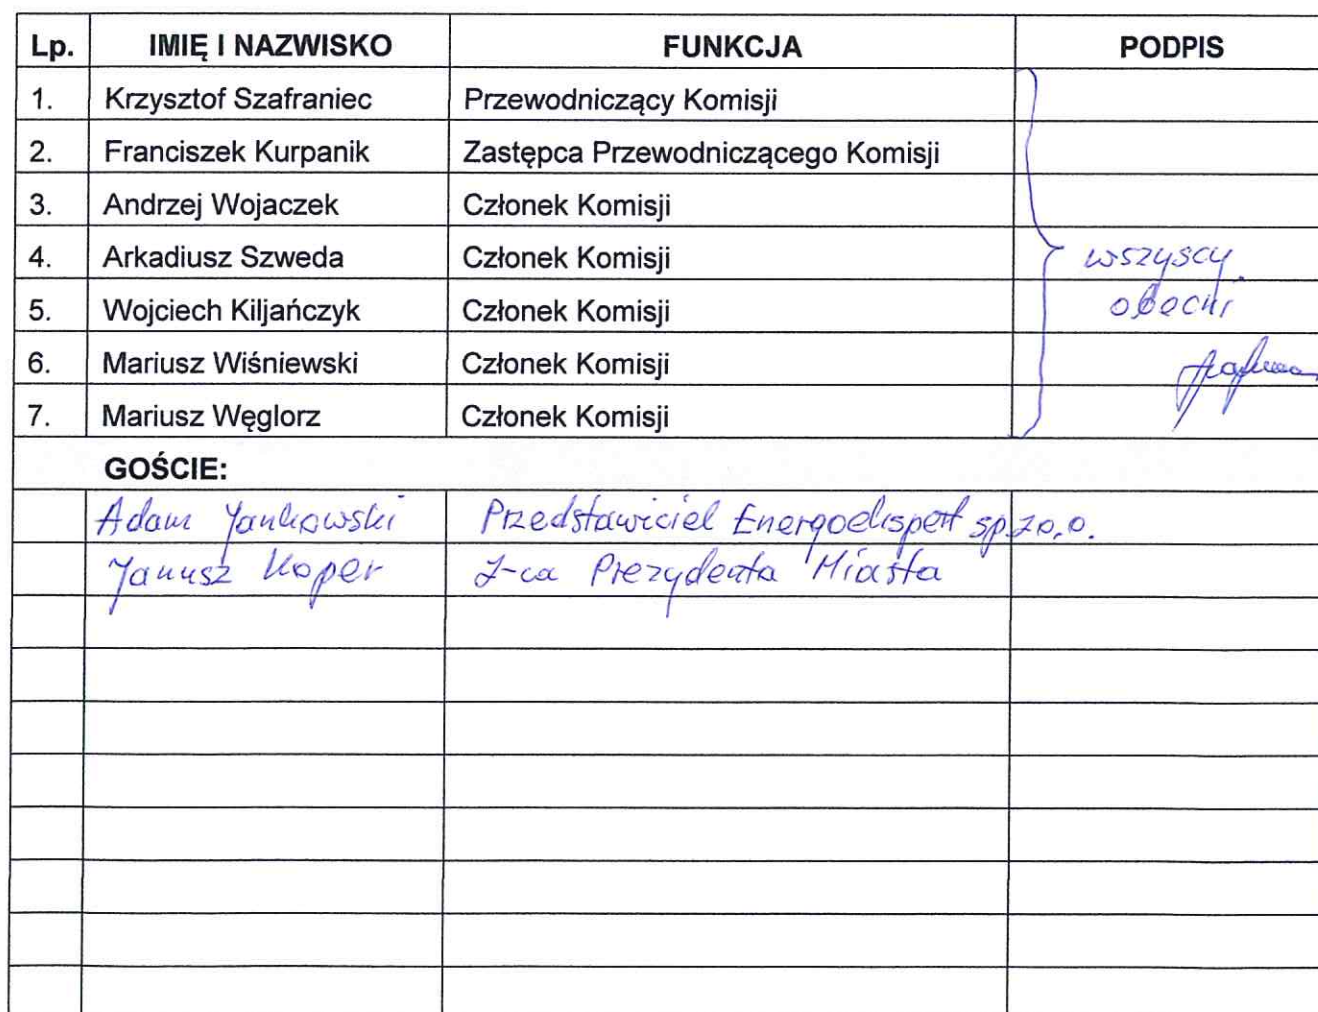 Lp. IMIĘ I NAZWISKO FUNKCJA PODPIS
1. Krzysztof Szafraniec Przewodniczący Komisji
2. Franciszek Kurpanik Zastępca Przewodniczącego Komisji
3. Andrzej Wojaczek Członek Komisji
4. Arkadiusz Szweda Członek Komisji wszyscy
5. Wojciech Kiljańczyk Członek Komisji obecni
6. Mariusz Wiśniewski Członek Komisji
7. Mariusz Węglorz Członek Komisji
GOŚCIE:
Adam Jankowski Przedstawiciel Energoekspert sp. z o.o.
Janusz Koper Z-ca Prezydenta Miasta